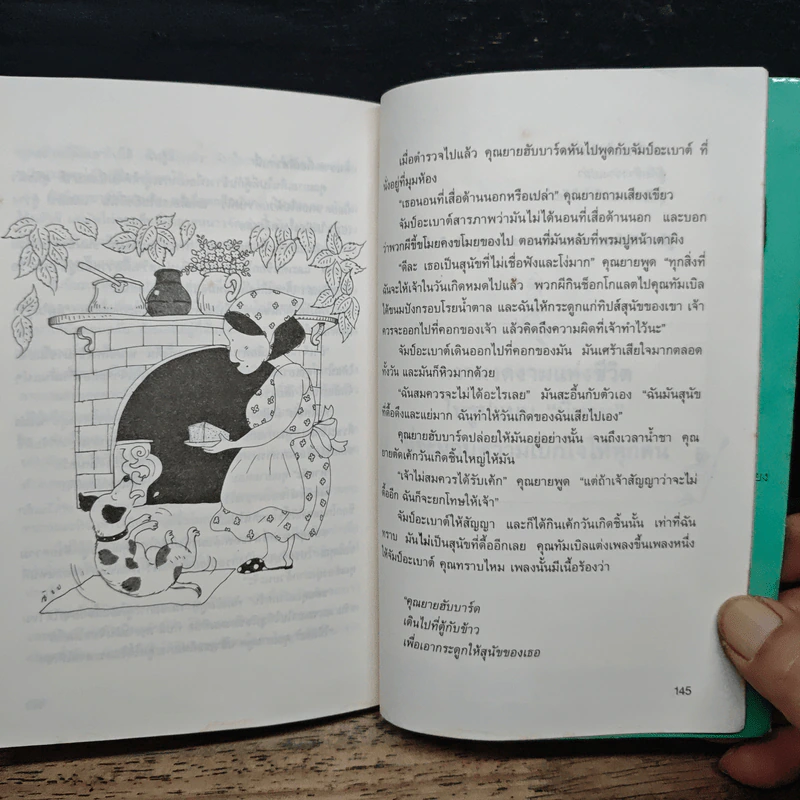 เมื่อตำรวจไปแล้ว คุณยายฮับบาร์ดหันไปพูดกับจัมป์อะเบาต์ ที่
นั่งอยู่ที่มุมห้อง
“เธอนอนที่เสื่อด้านนอกหรือเปล่า” คุณยายถามเสียงเขียว
จัมป์อะเบาต์สารภาพว่ามันไม่ได้นอนที่เสื่อด้านนอก และบอก
ว่าพวกผีขี้ขโมยคงขโมยของไป ตอนที่มันหลับที่พรมปูหน้าเตาผิง
“ดีละ เธอเป็นสุนัขที่ไม่เชื่อฟังและโง่มาก” คุณยายพูด “ทุกสิ่งที่
ฉันจะให้เจ้าในวันเกิดหมดไปแล้ว พวกผีกินช็อกโกแลตไปคุณทัมเบิล
ได้ขนมปังกรอบโรยน้ำตาล และฉันให้กระดูกแก่ทิปส์สุนัขของเขา เจ้า
ควรจะออกไปที่คอกของเจ้า แล้วคิดถึงความผิดที่เจ้าทำไว้นะ”
จัมป์อะเบาต์เดินออกไปที่คอกของมัน มันเศร้าเสียใจมากตลอด
ทั้งวัน และมันก็หิวมากด้วย
“ฉันสมควรจะไม่ได้อะไรเลย” มันสะอื้นกับตัวเอง “ฉันมันสุนัข
ที่ดื้อดึงและแย่มาก ฉันทำให้วันเกิดของฉันเสียไปเอง”
คุณยายฮับบาร์ดปล่อยให้มันอยู่อย่างนั้น จนถึงเวลาน้ำชา คุณ
ยายตัดเค้กวันเกิดชิ้นใหญ่ให้มัน
“เจ้าไม่สมควรได้รับเค้ก” คุณยายพูด “แต่ถ้าเจ้าสัญญาว่าจะไม่
ดื้ออีก ฉันก็จะยกโทษให้เจ้า”
จัมป์อะเบาต์ให้สัญญา และก็ได้กินเค้กวันเกิดชิ้นนั้น เท่าที่ฉัน
ทราบ มันไม่เป็นสุนัขที่ดื้ออีกเลย คุณทัมเบิลแต่งเพลงขึ้นเพลงหนึ่ง
ให้จัมป์อะเบาต์ คุณทราบไหม เพลงนั้นมีเนื้อร้องว่า
“คุณยายฮับบาร์ด
เดินไปที่ตู้กับข้าว
เพื่อเอากระดูกให้สุนัขของเธอ
145